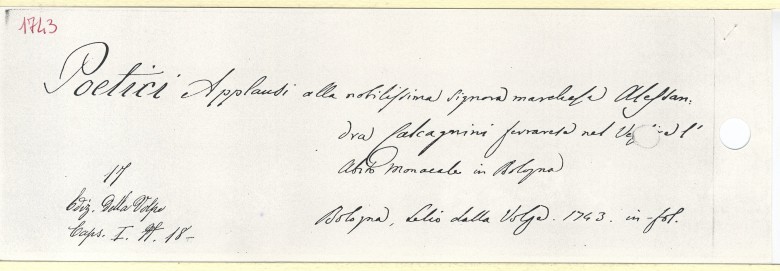 1743
Poetici Applausi alla nobilissima signora marchesa Alessan:
dra Calcagnini ferrarese nel l'
Abito Monacale in Bologna
17
Ediz. Della Volpe
Caps. I. N. 18 -
Bologna, Lelio dalla Volpe. 1743. in-fol.